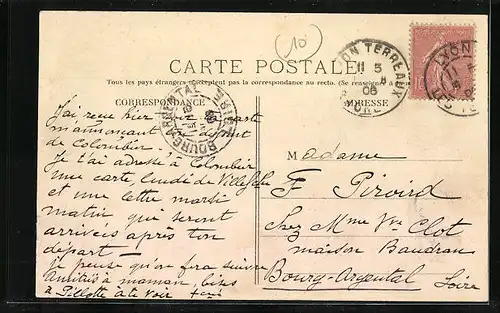 (10)
CARTE POSTALE
Tous les pays étrangers n'acceptent pas la correspondance au recto. (Se renseigner à
CORRESPONDANCE
ADRESSE
LYON TERREAUX
11 5
06
RHONE
LYON
BOURG-ARGENTAL
LOIRE
J'ai reçu hier ta carte
m'annonçant
de Colombier.
Je t'ai adressé à Colombier
une carte, lundi de Villefche
et une lettre mardi
matin qui seront
arrivées après ton
départ —
Je pense qu'on fera suivre
Amitiés à maman, bises
à
à te voir
Madame
F. Piroird
Chez Mme Vve Clot
maison Baudran
Bourg-Argental
Loire